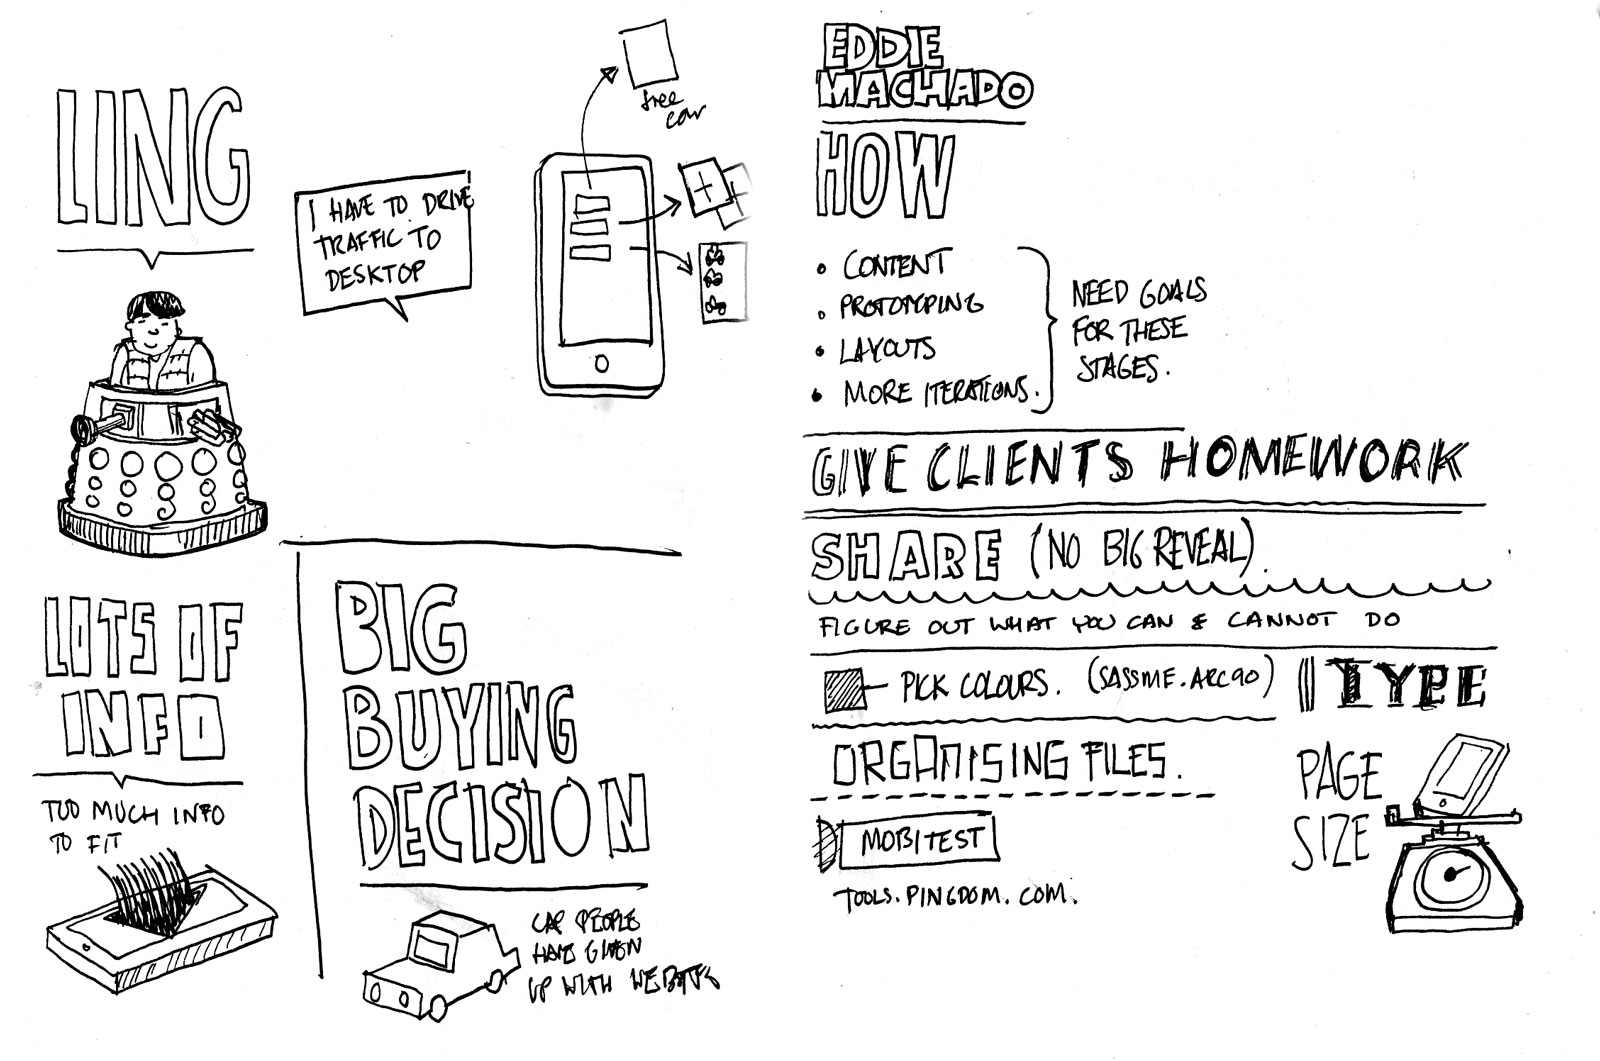 LING
I HAVE TO DRIVE
TRAFFIC TO
DESKTOP
free
car
LOTS OF
INFO
TOO MUCH INFO
TO FIT
BIG
BUYING
DECISION
CAR PEOPLE
HAVE GIVEN
UP WITH WEBSITES
EDDIE
MACHADO
HOW
• CONTENT
• PROTOTYPING
• LAYOUTS
• MORE ITERATIONS.
NEED GOALS
FOR THESE
STAGES.
GIVE CLIENTS HOMEWORK
SHARE (NO BIG REVEAL).
FIGURE OUT WHAT YOU CAN & CANNOT DO
PICK COLOURS. (SASSME.ARC90)
TYPE
ORGANISING FILES.
PAGE
SIZE
MOBITEST
TOOLS.PINGDOM.COM.